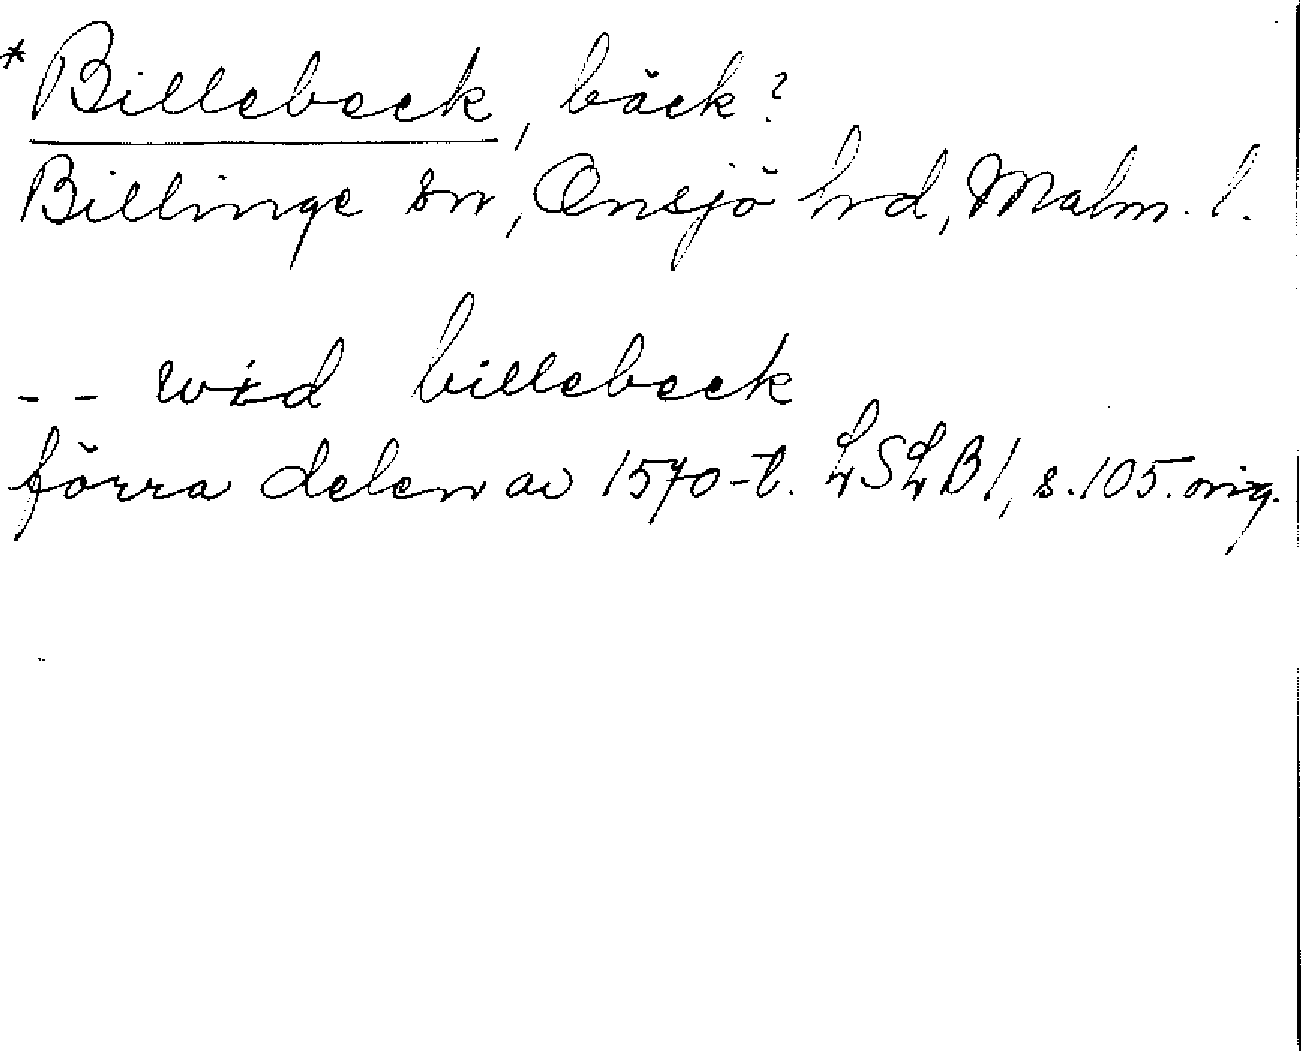 *Billebeck, bäck?
Billinge sn, Onsjö hd, Malm. l.
-- wid billebeck
förra delen av 1570-t. LSLB 1, s. 105. orig.